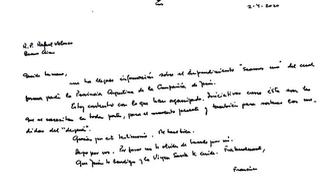 2-4-2020
R.P. Rafael Velasco
Buenos Aires
Querido hermano,
me ha llegado información sobre el emprendimiento "Seamos uno" del cual
forma parte la Provincia Argentina de la Compañía de Jesús.
Estoy contento con lo que han organizado. Iniciativas como ésta son las
que se necesitan en todas partes, para el momento presente y también para
didas del "después".
Gracias por este testimonio. Me hace bien.
Rezo por vos. Por favor no te olvides de hacerlo por mí.
Que Jesús te bendiga y la Virgen Santa te cuide. Fraternalmente,
Francisco